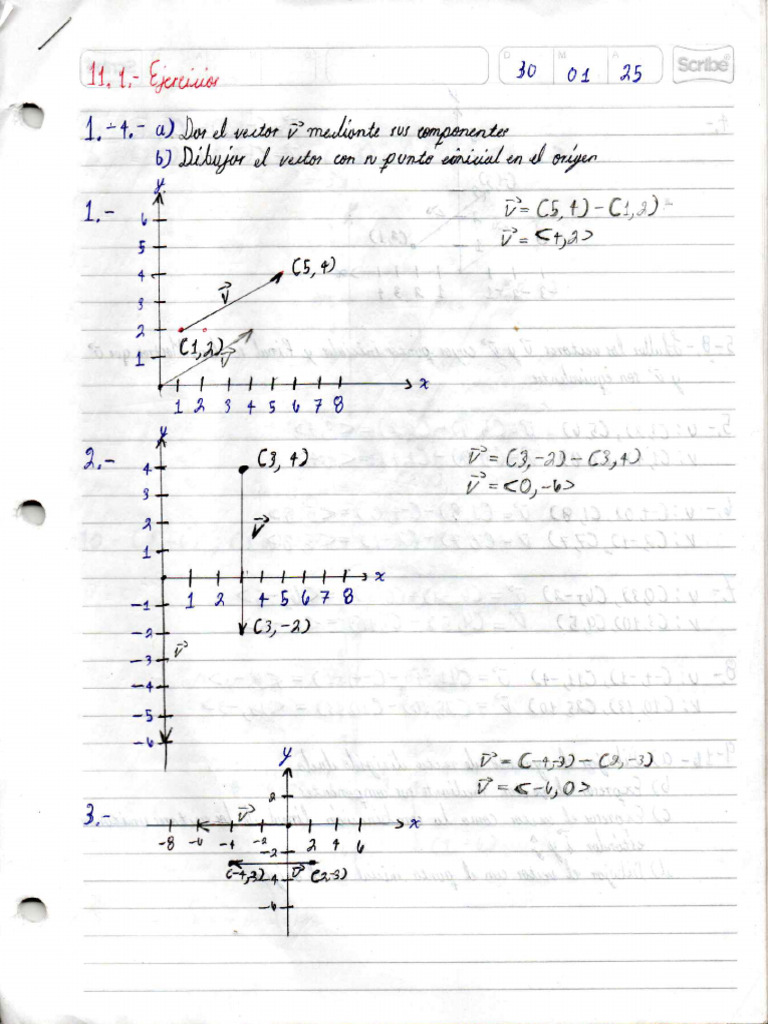 11.1.- Ejercicios
D M A
30 01 25
Scribe
1.-4.- a) Dar el vector v⃗ mediante sus componentes
b) Dibujar el vector con su punto inicial en el origen
1.-
y
6
5
4
3
2
1
(5,4)
v⃗
(1,2)
v⃗
x
1 2 3 4 5 6 7 8
v⃗ = (5,4) - (1,2)
v⃗ = <4,2>
2.-
y
4
3
2
1
(3,4)
v⃗
x
-1
1 2 4 5 6 7 8
-2
(3,-2)
-3
v⃗
-4
-5
-6
v⃗ = (3,-2) - (3,4)
v⃗ = <0,-6>
3.-
y
2
v⃗
x
-8 -6 -4 -2 2 4 6
-2
(-4,3) v⃗ (2-3)
-4
-6
v⃗ = (-4,-3) - (2,-3)
v⃗ = <-6,0>